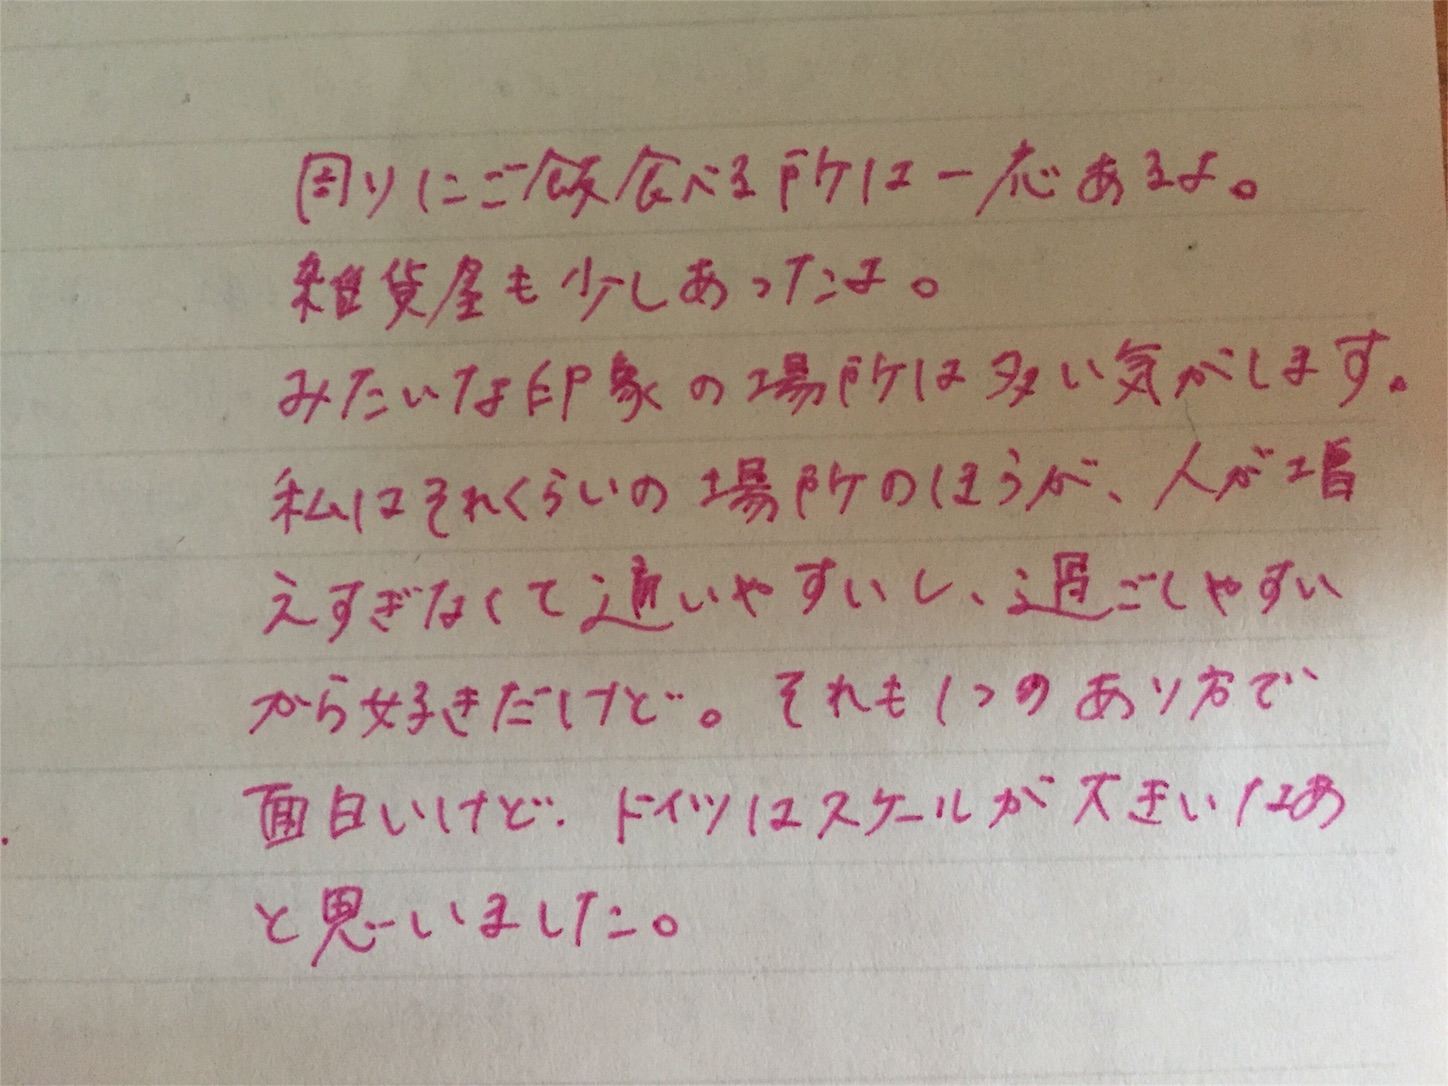 周りにご飯食べる所は一応あるよ。
雑貨屋も少しあったよ。
みたいな印象の場所は多い気がします。
私はそれくらいの場所のほうが、人が増
えすぎなくて通いやすいし、過ごしやすい
から好きだけど。それも1つのあり方で
面白いけど、ドイツはスケールが大きいなあ
と思いました。